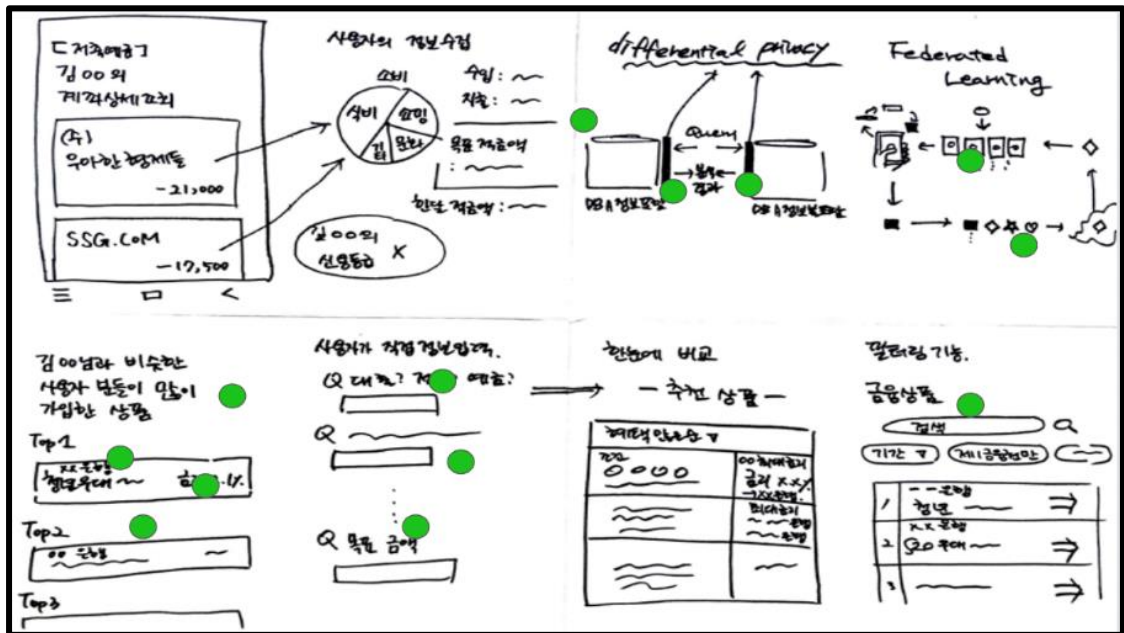 [저축예금]
김OO의
계좌상세조회
(주)
우아한형제들
-21,000
SSG.COM
-17,500
사용자의 정보수집
소비
식비
쇼핑
기타
문화
수입:
지출:
목표 적금액
:
한달 적금액:
김OO의
신용등급 X
differential privacy
Query
분석
결과
DB A 정보보관
Federated
Learning
김OO님과 비슷한
사용자 분들이 많이
가입한 상품
Top1
XX은행
청년우대
Top2
OO 은행
Top3
사용자가 직접 정보입력.
Q 대출? 예금?
Q
Q 목표 금액
한눈에 비교
- 추천 상품 -
혜택 많은순
OO 최대금리
금리 X.X%
→XX은행.
최대금리
은행
은행
필터링 기능.
금융상품
검색
기간
제1금융권만
1
--은행
청년
2
XX은행
우대
3